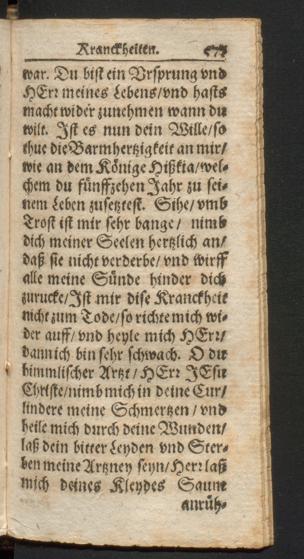 Kranckheiten. 575
war. Du bist ein Vrsprung vnd
HErr meines Lebens/vnd hasts
macht wider zunehmen wann du
wilt. Ist es nun dein Wille/so
thue die Barmhertzigkeit an mir/
wie an dem Könige Hißkia/wel-
chem du fünffzehen Jahr zu sei-
nem Leben zusetztest. Sihe/vmb
Trost ist mir sehr bange/ nimb
dich meiner Seelen hertzlich an/
daß sie nicht verderbe/vnd wirff
alle meine Sünde hinder dich
zurucke/Ist mir dise Kranckheit
nicht zum Tode/so richte mich wi-
der auff/vnd heyle mich HErr/
dann ich bin sehr schwach. O du
himmlischer Artzt/HErr JEsu
Christe/nimb mich in deine Cur/
lindere meine Schmertzen/vnd
heile mich durch deine Wunden/
laß dein bitter Leyden vnd Ster-
ben meine Artzney seyn/Herr laß
mich deines Kleydes Saum
anrüh-